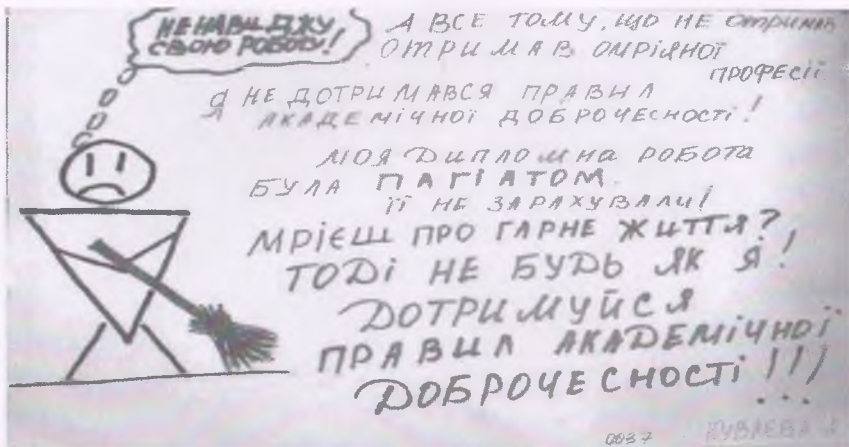 НЕНАВИДЖУ
СВОЮ РОБОТУ!
А ВСЕ ТОМУ, ЩО НЕ отримав
ОТРИМАВ ОМРІЯНОЇ
ПРОФЕСІЇ
Я НЕ ДОТРИМАВСЯ ПРАВИЛ
АКАДЕМІЧНОЇ ДОБРОЧЕСНОСТІ!
МОЯ ДИПЛОМНА РОБОТА
БУЛА ПАГІАТОМ.
ЇЇ НЕ ЗАРАХУВАЛИ!
МРІЄШ ПРО ГАРНЕ ЖИТТЯ?
ТОДІ НЕ БУДЬ ЯК Я!
ДОТРИМУЙСЯ
ПРАВИЛ АКАДЕМІЧНОЇ
ДОБРОЧЕСНОСТІ!!!